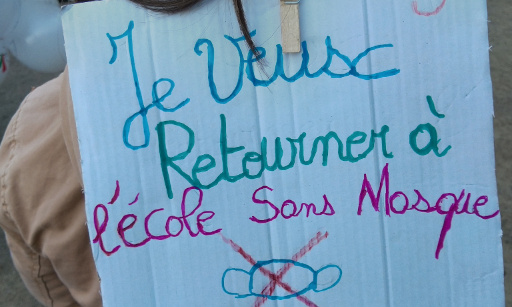 Je Veux
Retourner à
l'école Sans Masque